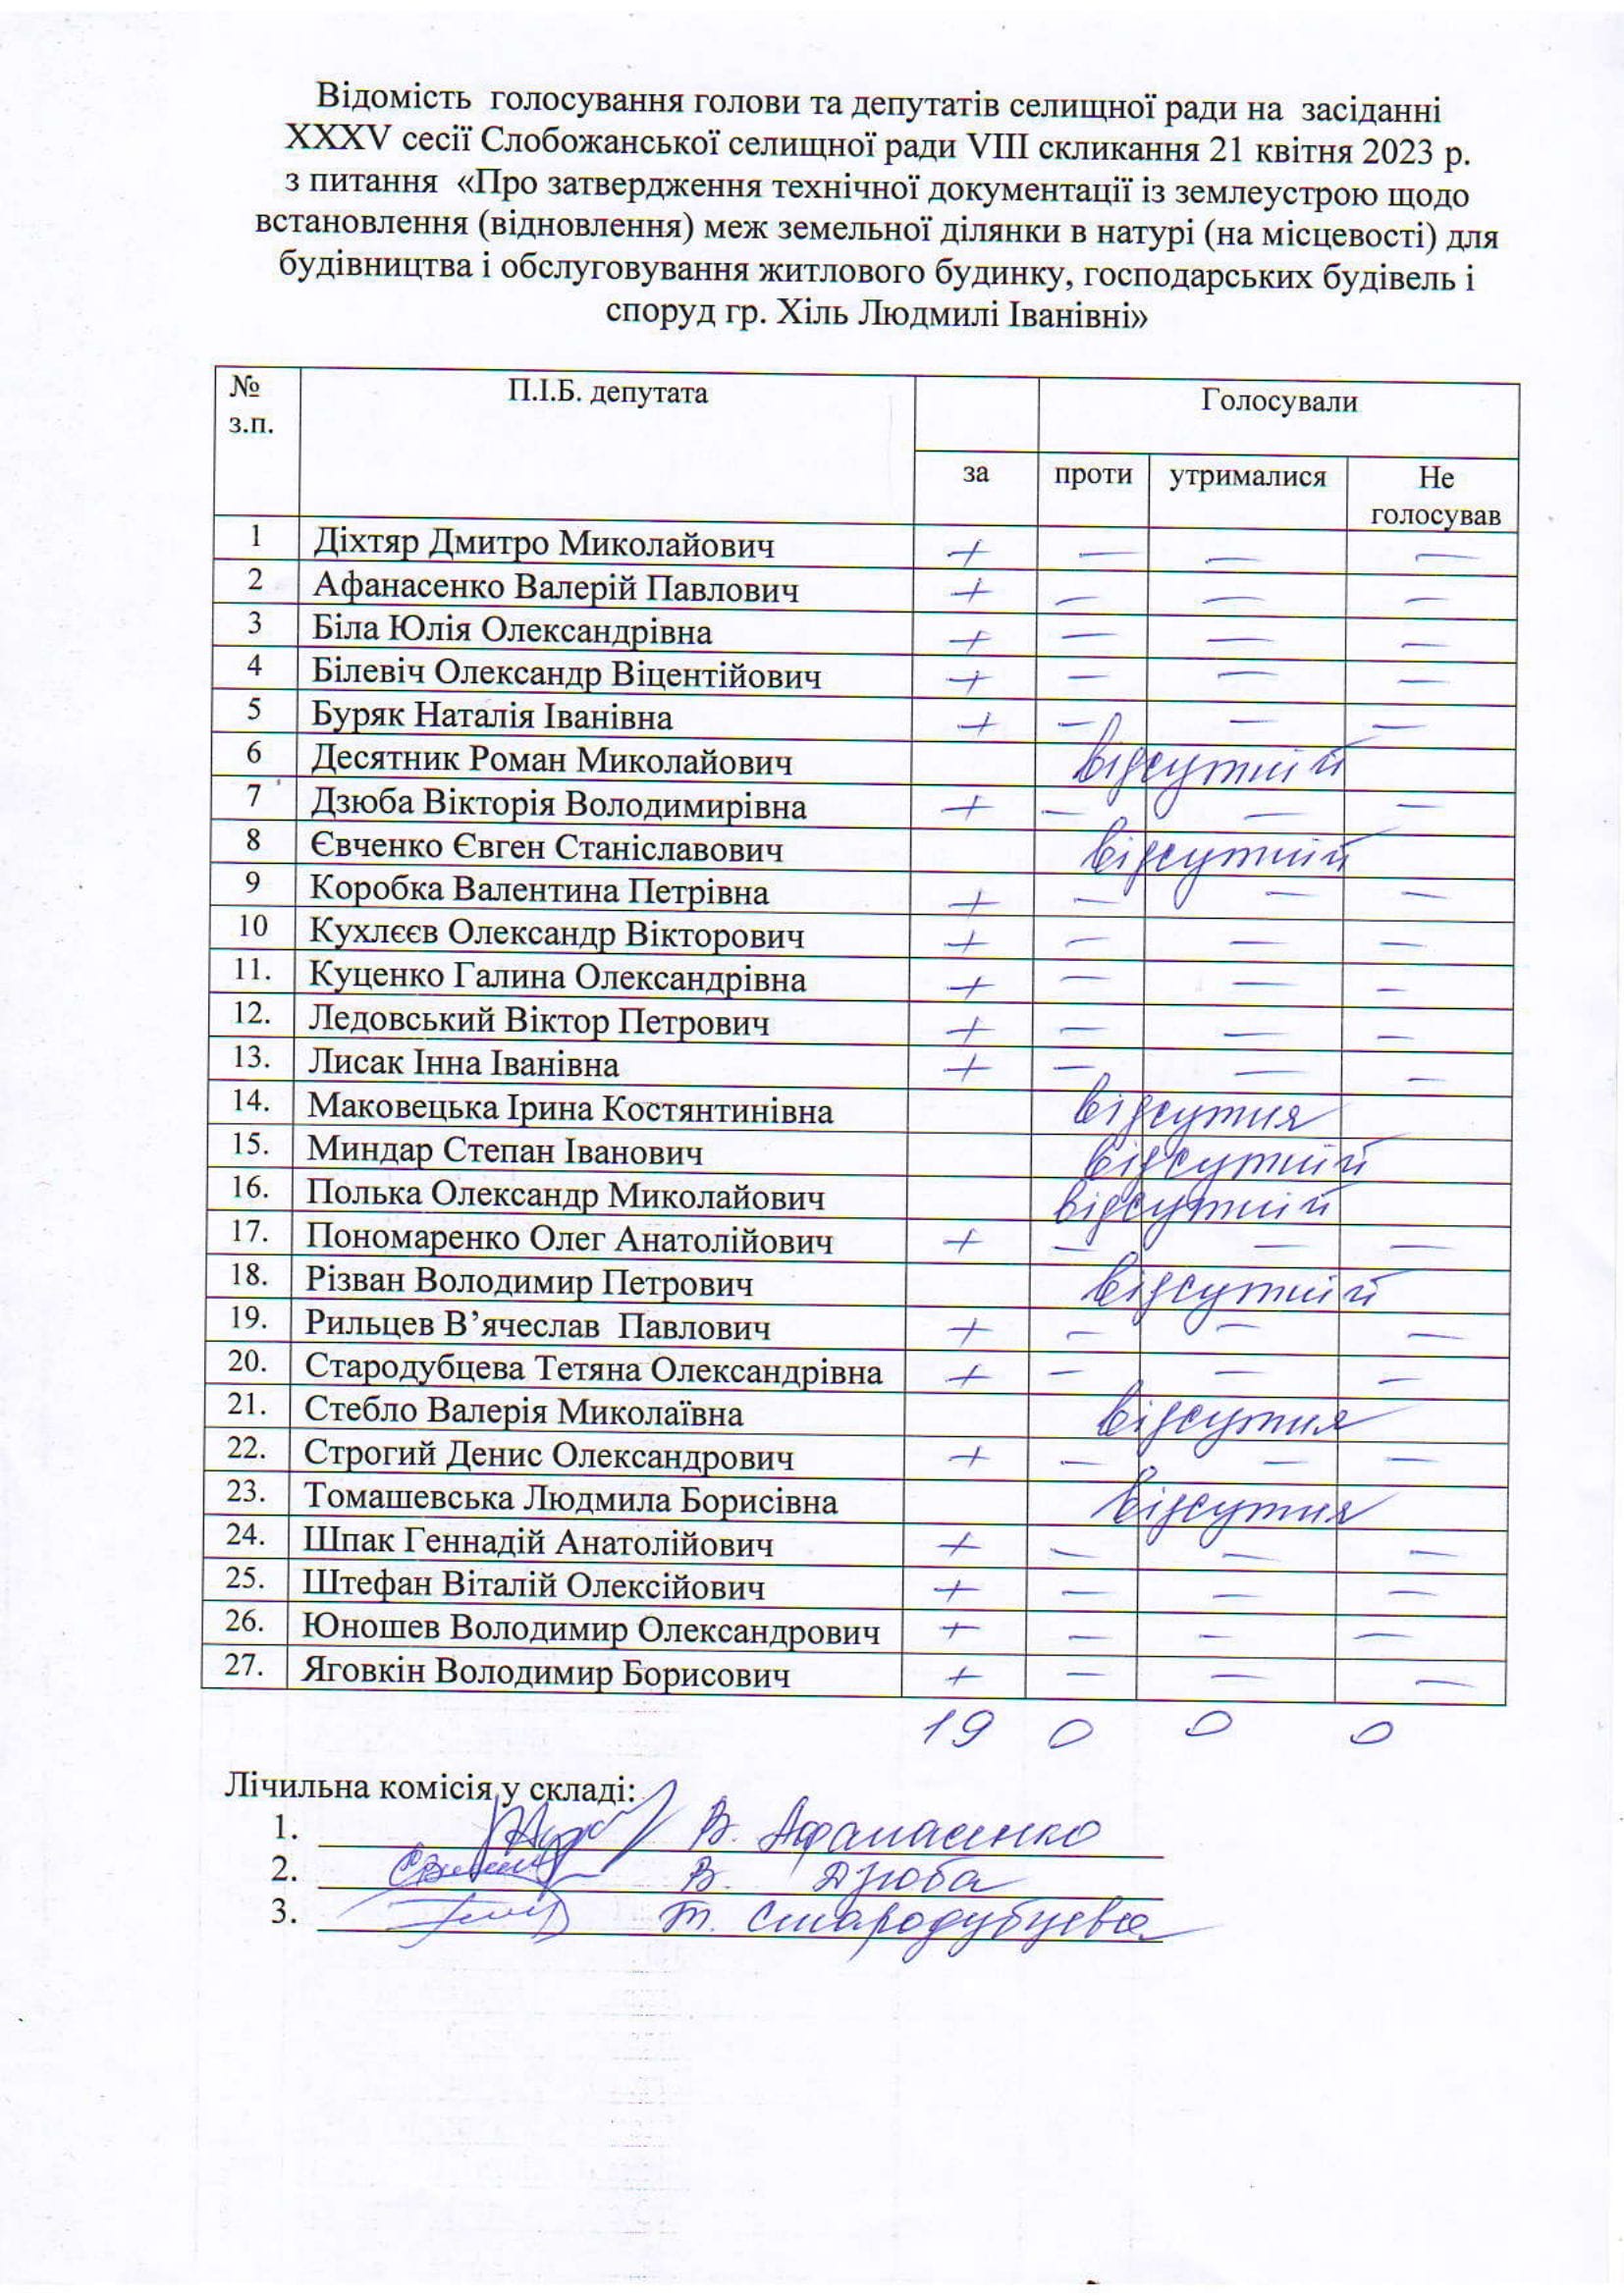 Відомість голосування голови та депутатів селищної ради на засіданні
XXXV сесії Слобожанської селищної ради VIII скликання 21 квітня 2023 р.
з питання «Про затвердження технічної документації із землеустрою щодо
встановлення (відновлення) меж земельної ділянки в натурі (на місцевості) для
будівництва і обслуговування житлового будинку, господарських будівель і
споруд гр. Хіль Людмилі Іванівні»
№ з.п. П.І.Б. депутата Голосували
за проти утрималися Не голосував
1 Діхтяр Дмитро Миколайович + — — —
2 Афанасенко Валерій Павлович + — — —
3 Біла Юлія Олександрівна + — — —
4 Білевіч Олександр Віцентійович + — — —
5 Буряк Наталія Іванівна + — — —
6 Десятник Роман Миколайович відсутній
7 Дзюба Вікторія Володимирівна + — — —
8 Євченко Євген Станіславович відсутній
9 Коробка Валентина Петрівна + — — —
10 Кухлєєв Олександр Вікторович + — — —
11. Куценко Галина Олександрівна + — — —
12. Ледовський Віктор Петрович + — — —
13. Лисак Інна Іванівна + — — —
14. Маковецька Ірина Костянтинівна відсутня
15. Миндар Степан Іванович відсутній
16. Полька Олександр Миколайович відсутній
17. Пономаренко Олег Анатолійович + — — —
18. Різван Володимир Петрович відсутній
19. Рильцев В’ячеслав Павлович + — — —
20. Стародубцева Тетяна Олександрівна + — — —
21. Стебло Валерія Миколаївна відсутня
22. Строгий Денис Олександрович + — — —
23. Томашевська Людмила Борисівна відсутня
24. Шпак Геннадій Анатолійович + — — —
25. Штефан Віталій Олексійович + — — —
26. Юношев Володимир Олександрович + — — —
27. Яговкін Володимир Борисович + — — —
19 0 0 0
Лічильна комісія у складі:
1. В. Афанасенко
2. В. Дзюба
3. Т. Стародубцева